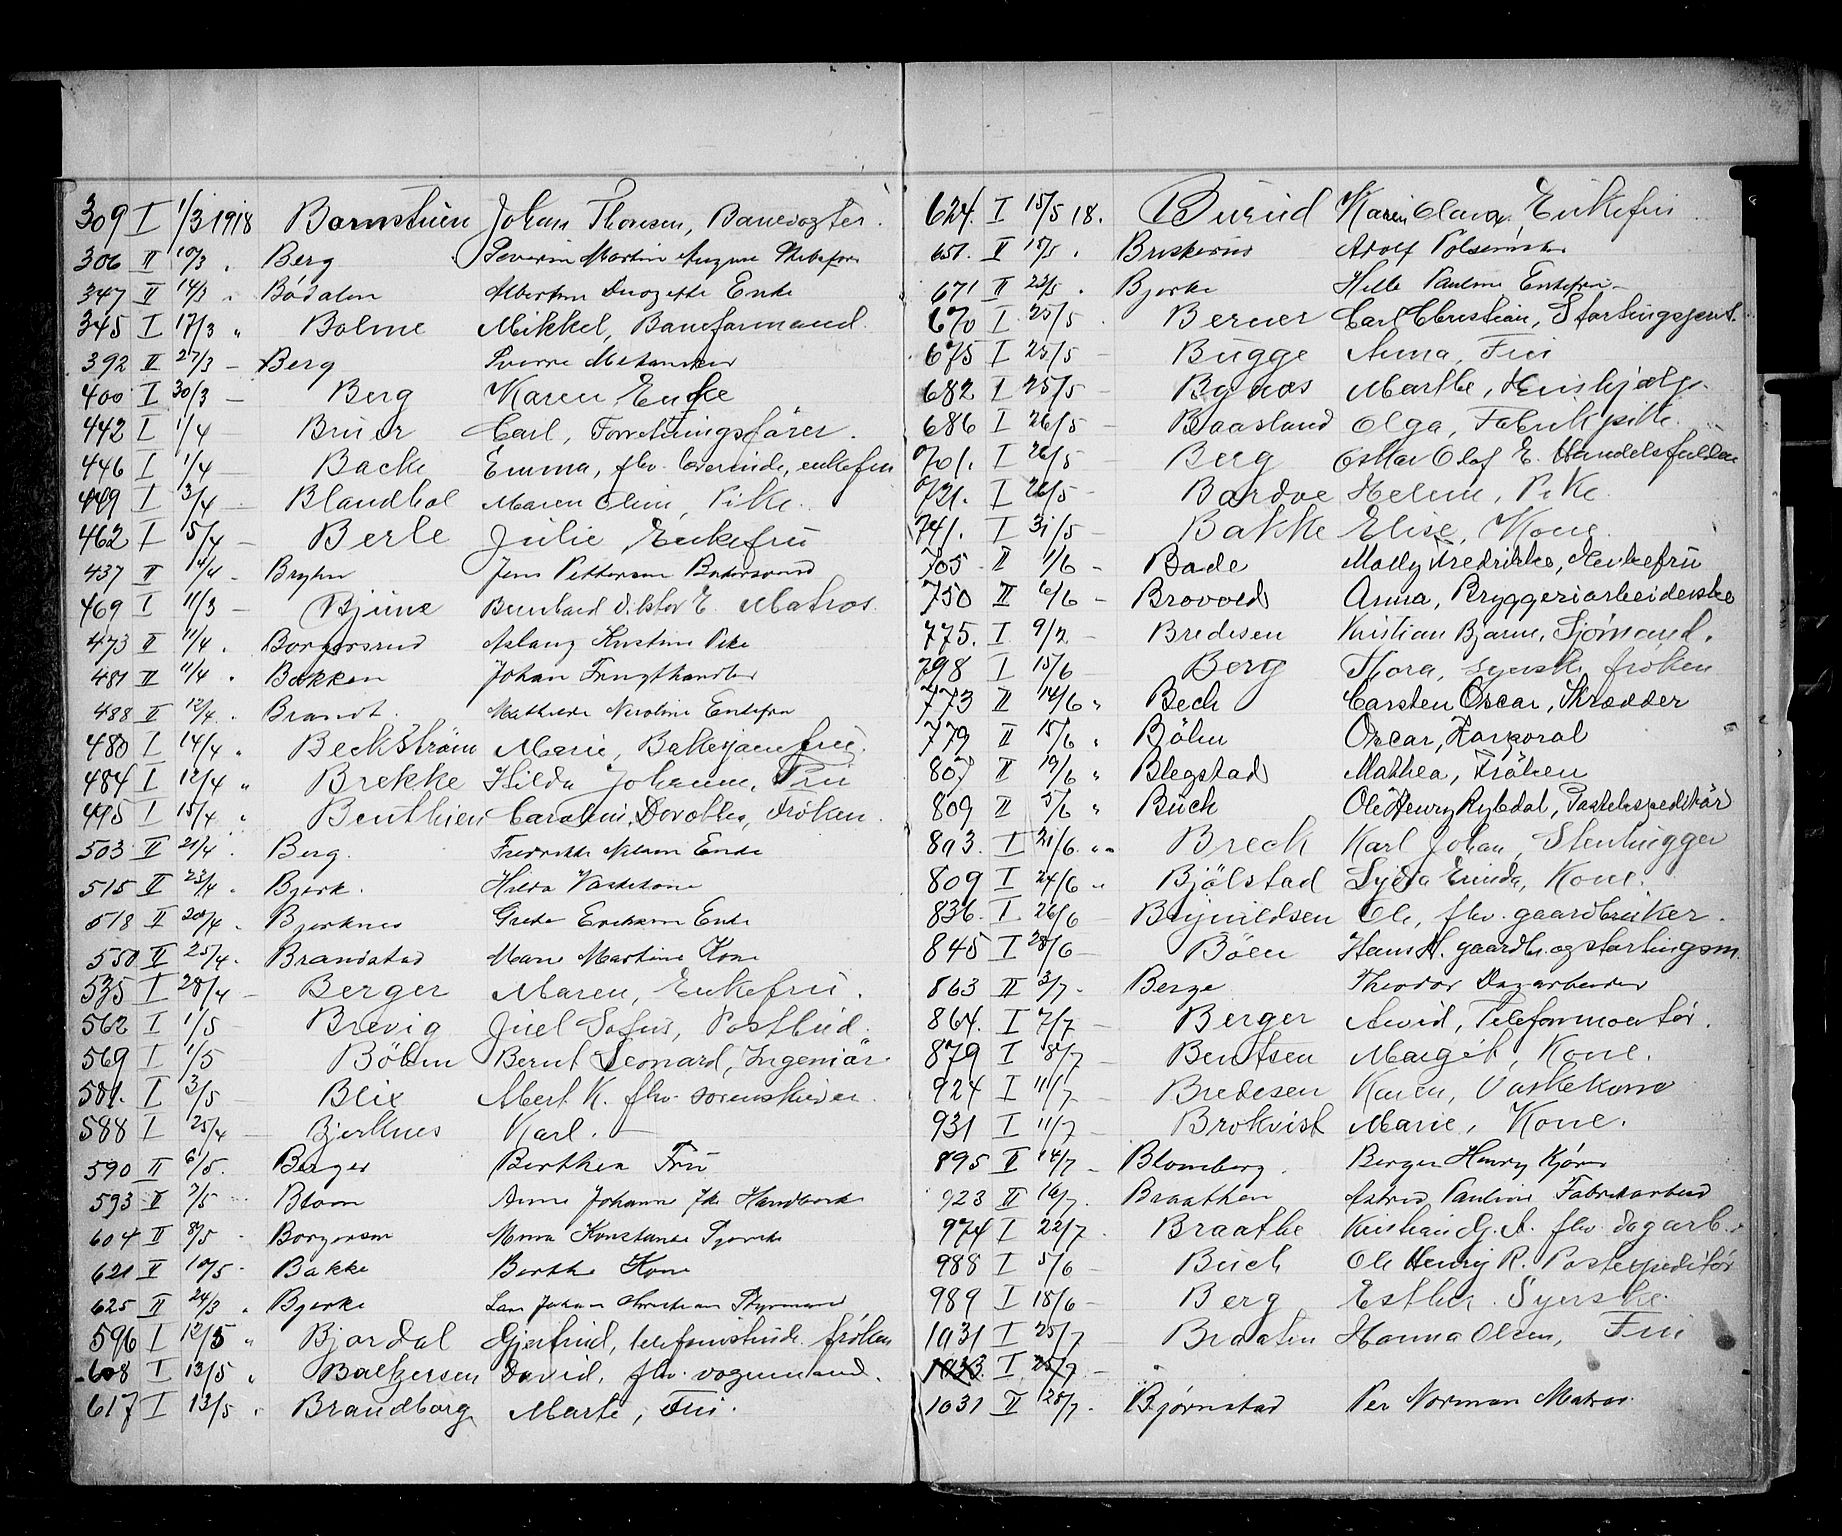 309 I 1/3 1918 Bornstuen Johan Thoresen, Banevogter.
306 II 10/3 " Berg Severin Martin August
347 II 14/3 " Bødalen Enke
345 I 17/3 " Bolme Mikkel, Baneformand.
392 II 27/3 — Berg Sverre
400 I 30/3 — Berg Karen, Enke
442 I 1/4 Bruer Carl, Forretningsfører.
446 I 1/4 — Backe Emma, enkefru
449 I 3/4 — Blandhol Maren Oline, Pike.
462 I 5/4 — Berle Julie, Enkefru
437 II 14/4 - Bryhn Jens Pettersen
469 I 11/3 — Bjune Bernhard Viktor E. Matros.
473 II 11/4 . Borgersrud Aslaug Kristine Pike
481 II 11/4 " Bakken Johan Frugthandler
488 II 12/4 . Brandt. Mathilde Nicoline Enkefru
480 I 14/4 " Beckstrøm Marie, fru.
484 I 12/4 " Brekke Hilda Johanne, Fru
495 I 15/4 " Benthien Caroline Dorothea, Frøken.
503 II 21/4 . Berg. Fredrikke Nilsen Enke
515 II 23/4 " Bjerk. Hilda Vaskekone
518 II 20/4 " Bjerknes Grete Eriksen Enke
550 II 25/4 . Brandstad Maren Martine Kone
535 I 28/4 — Berger Maren, Enkefru.
562 I 1/5 Brevig Juel Sofus, Postbud.
569 I 1/5 Böhm Bernt Leonard, Ingeniør.
581. I 3/5 — Blix Albert K. fhv. sorenskriver.
588 I 25/4 — Bjerknes Karl. —
590 II 6/5. Berger Berthea Fru
593 II 7/5 Blom Anne Johanne
604 II 8/5 - Borgersen Mina Konstanse
621 II 10/5 - Bakke Berthe Kone
625 II 24/3 " Bjerke Lars Johan Christian Styrmand
596 I 12/5 " Bjordal Gjertrud, frøken
608 I 13/5 " Baltzersen David, fhv. vognmand.
617 I 13/5 " Brandborg Marte, Fru.
624. I 15/5 18. Burud Karen Olava. Enkefru
651. II 15/5 . Briskerud Adolf Pølsemaker
671 II 23/5 . Bjerke Helle Pauline Enkefru
670 I 25/5 . Berner Carl Christian, Stortingsprest.
675 I 25/5 — Bugge Anna, Fru
682 I 25/5 — Bynæs Marthe, Hushjælp.
686 I 26/5 — Baasland Olga, Fabrikpike.
701. I 26/5 Berg Oskar Olaf E. Handelsfuldm
721. I 26/5 — Bardoe Helene, Pike.
741. I 31/5 — Bakke Elise, Kone
705 II 1/6 - Bade Molly Fredrikke, Enkefru
750 II 6/6 - Brovold Anna, Bryggeriarbeiderske
775. I 9/2 - Bredesen Kristian Bjarne, Sjømand.
798 I 15/6 Berg Thora, syerske, frøken
773 II 14/6 " Bech Carsten Oscar, Skrædder
779 II 15/6 " Böhm Oscar, Korporal
807 II 19/6 " Blegstad Mathea, Fröken
809 II 5/6 " Büch Ole Henry Rykdal, Postekspeditör
803. I 21/6. " Brech Karl Johan, Stenhugger
809 I 24/6 " Bjölstad Lyda Erinda, Kone.
836. I 26/6 Brynildsen Ole, fhv. gaardbruker.
845 I 28/6 — Böen Hans H. gaardbr. og stortingsm.
863 II 3/7 - Berge Theodor Dagarbeider
864. I 7/7 — Berger Arvid, Telefonmontør.
879 I 8/7 — Bentsen Margit, Kone.
924 I 11/7 Bredesen Karen, Vaskekone
931 I 11/7 — Brokvist Marie, Kone.
895 II 14/7 - Blomberg. Berger Henry Kjører
923 II 16/7. Braathen Astrid Pauline Fabrikarbeid
974 I 22/7 . Braathe Kristian G. A. fhv. dagarb.
988 I 5/6 Buch Ole Henry R. Postexpeditør
989 I 18/6 — Berg Esther. Syerske.
1031 I 25/7 — Braaten Hanna Olsen, Fru
1033. I 25/7 —
1031 II 28/7. Bjørnstad Per Norman Matros.